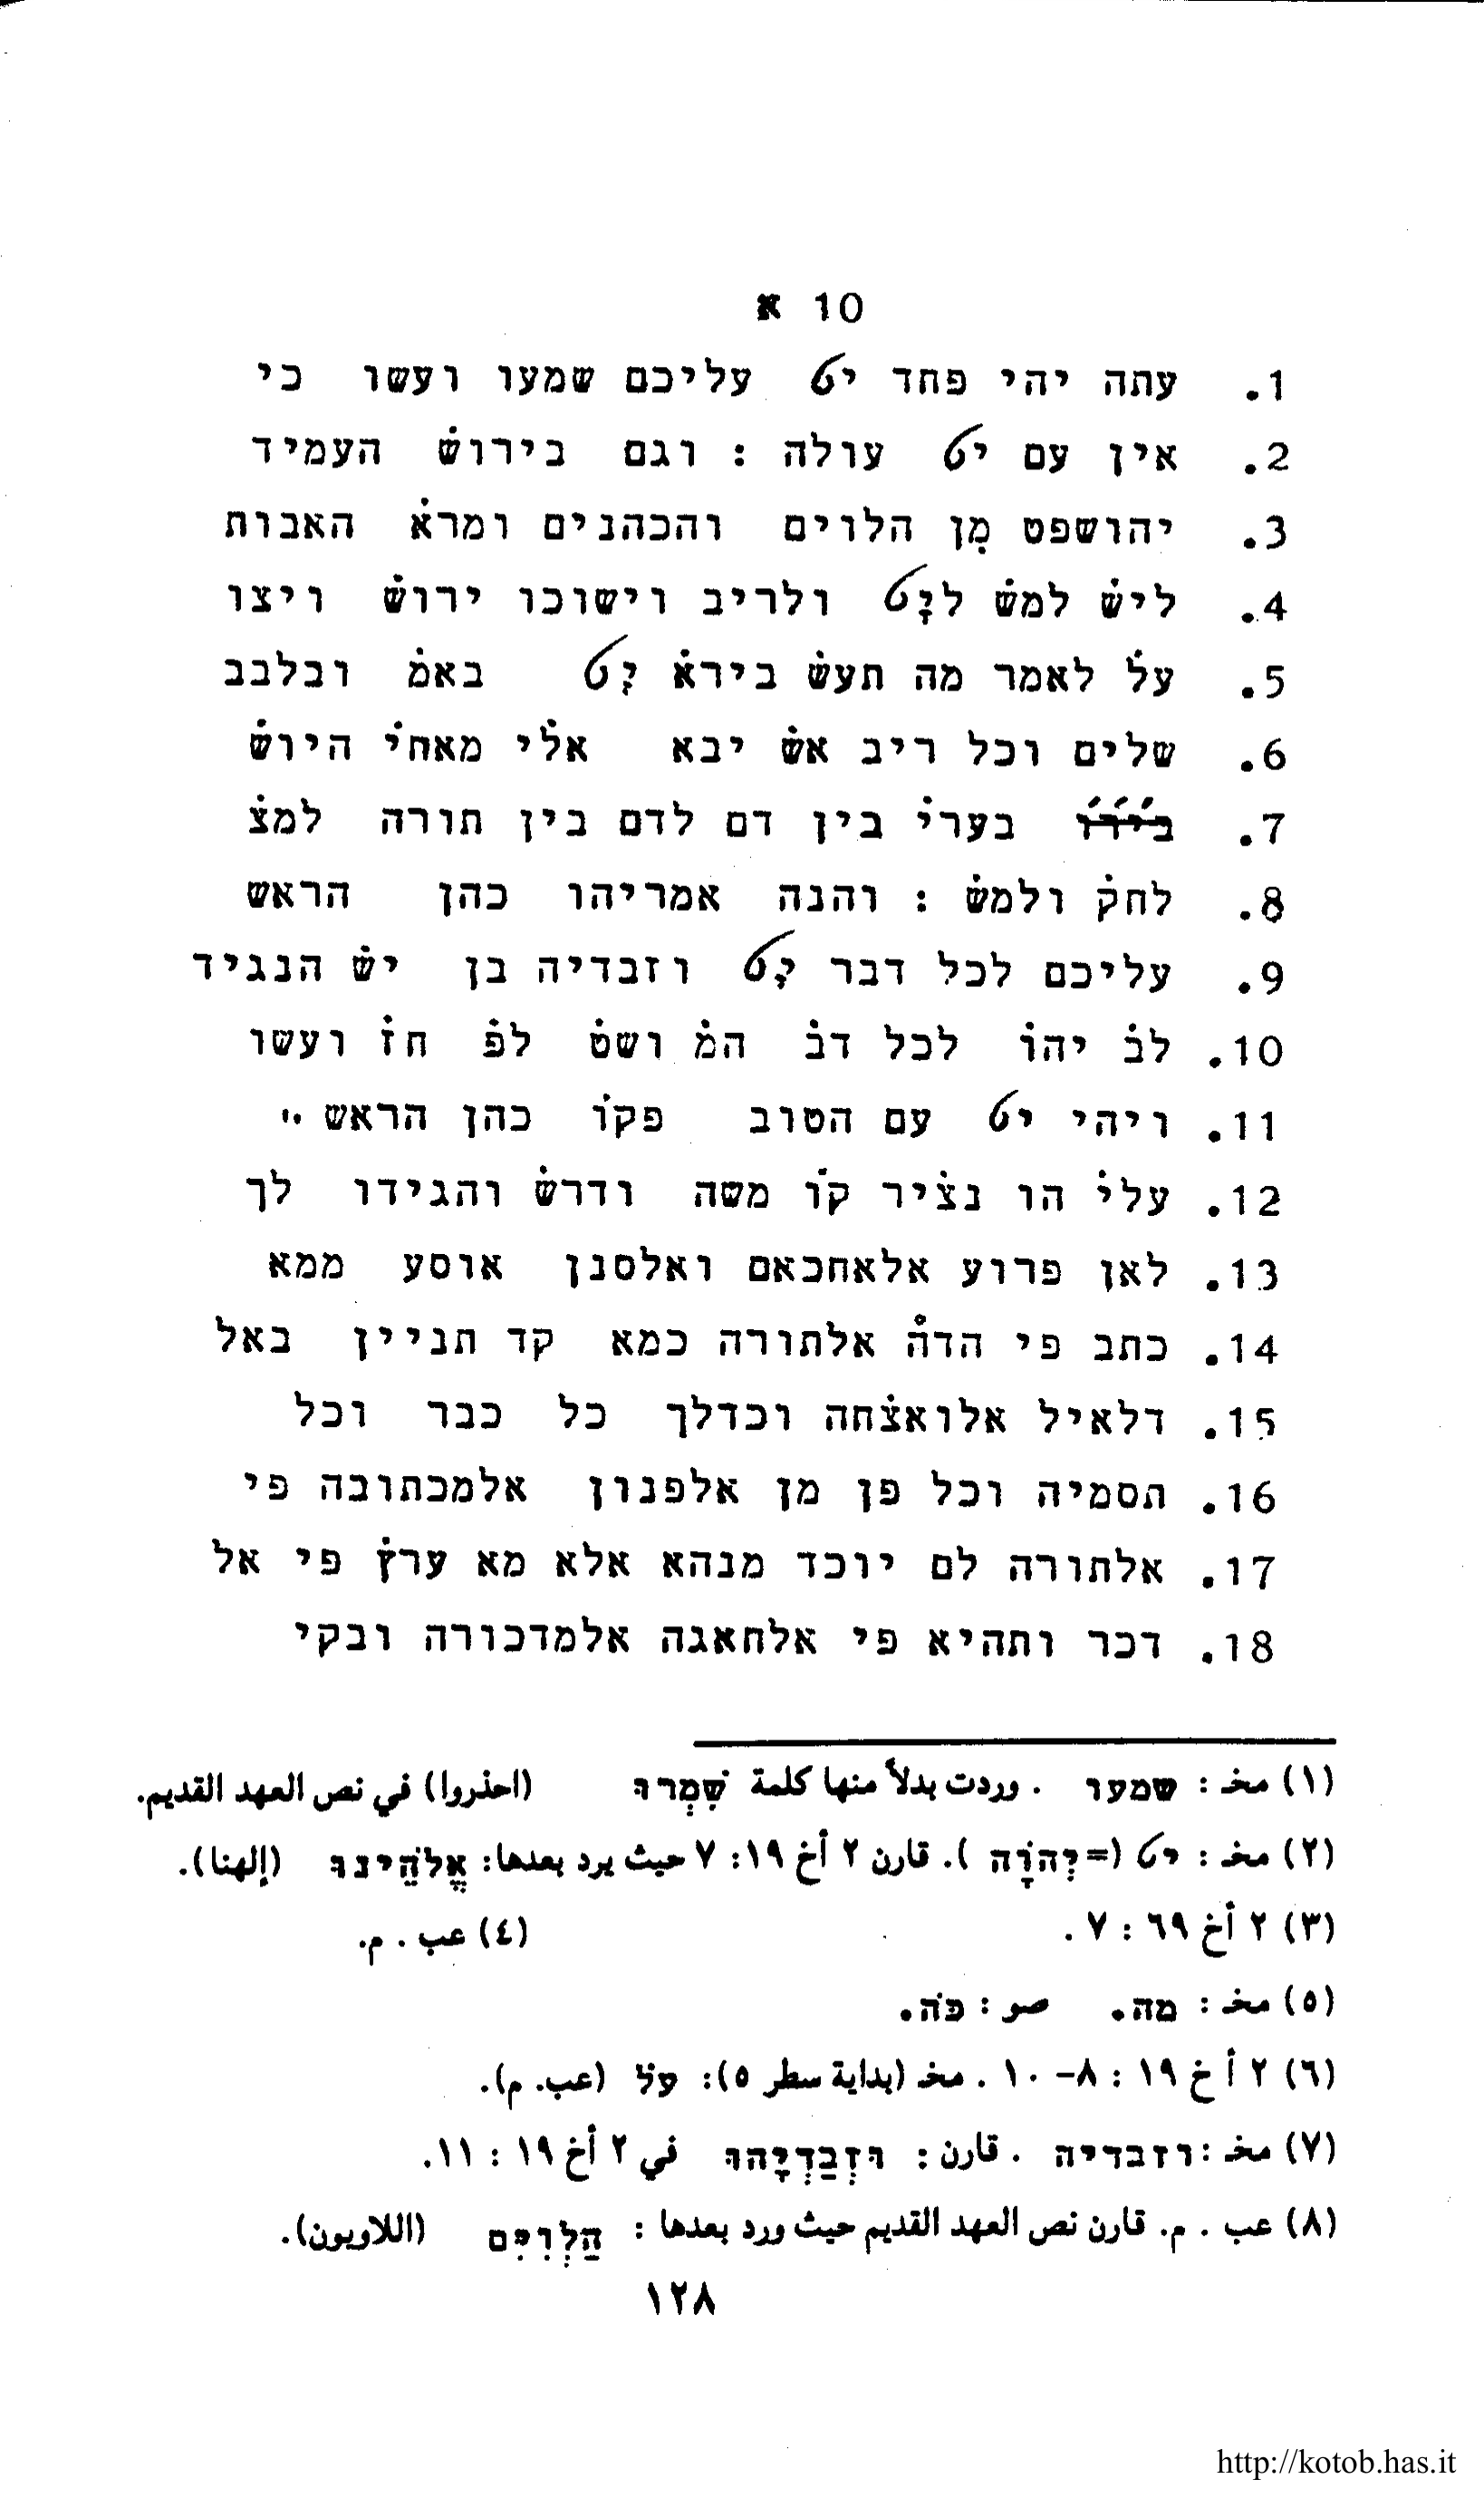 10 א
1. עתה יהי פחד יי עליכם שמעו ועשו כי
2. אין עם יי עולה : וגם בירושׄ העמיד
3. יהושפט מִן הלוים והכהנים ומראׄ האבות
4. לישׄ למשׄ ליי ולריב וישוכו ירושׄ ויצו
5. עלׄ לאמר מה תעשׄ ביראׄ יי באמׄ ובלבב
6. שלים וכל ריב אשׄ יבא אלׄי מאחיׄ היושׄ
7. בעריׄ בין דם לדם בין תורה למצׄ
8. לחקׄ ולמשׄ : והנה אמריהו כהן הראש
9. עליכם לכל דבר יי וזבדיה בן ישׄ הנגיד
10. לבׄ יהוׄ לכל דבׄ המׄ ושטׄ לפׄ חזׄ ועשו
11. ויהי יי עם הטוב פקוׄ כהן הראש ״
12. עליׄ הו נצׄיר קוׄ משה ודרשׄ והגידו לך
13. לאן פרוע אלאחכאם ואלסנן אוסע ממא
14. כתב פי הדהׄ אלתורה כמא קד תניין באל
15. דלאיל אלואצׄחה וכדלך כל כבר וכל
16. תסמיה וכל פן מן אלפנון אלמכתובה פי
17. אלתורה לם יוכד מנהא אלא מא ערץׄ פי אל
18. דכר ותהיא פי אלחאגה אלמדכורה ובקי
(١) مخـ : שמעו . وردت بدلاً منها كلمة שִׁמְרוּ (احذروا) في نص العهد القديم.
(٢) مخـ : יי (= יְהוָֹה ). قارن ٢ أخ ١٩: ٧ حيث يرد بعدها: אֱלֹהֵינוּ (إلهنا).
(٣) ٢ أخ ٦٩ : ٧ . (٤) عب . م.
(٥) مخـ : מה. صو : כֹּה.
(٦) ٢ أ خ ١٩ : ٨- ١٠ . مخـ (بداية سطر ٥): עלׄ (عب. م).
(٧) مخـ : וזבדיה . قارن : וּזְבַדְיָהוּ في ٢ أخ ١٩ : ١١.
(٨) عب . م. قارن نص العهد القديم حيث ورد بعدها : הַלְוִיִּם (اللاويون).
١٢٨
http://kotob.has.it